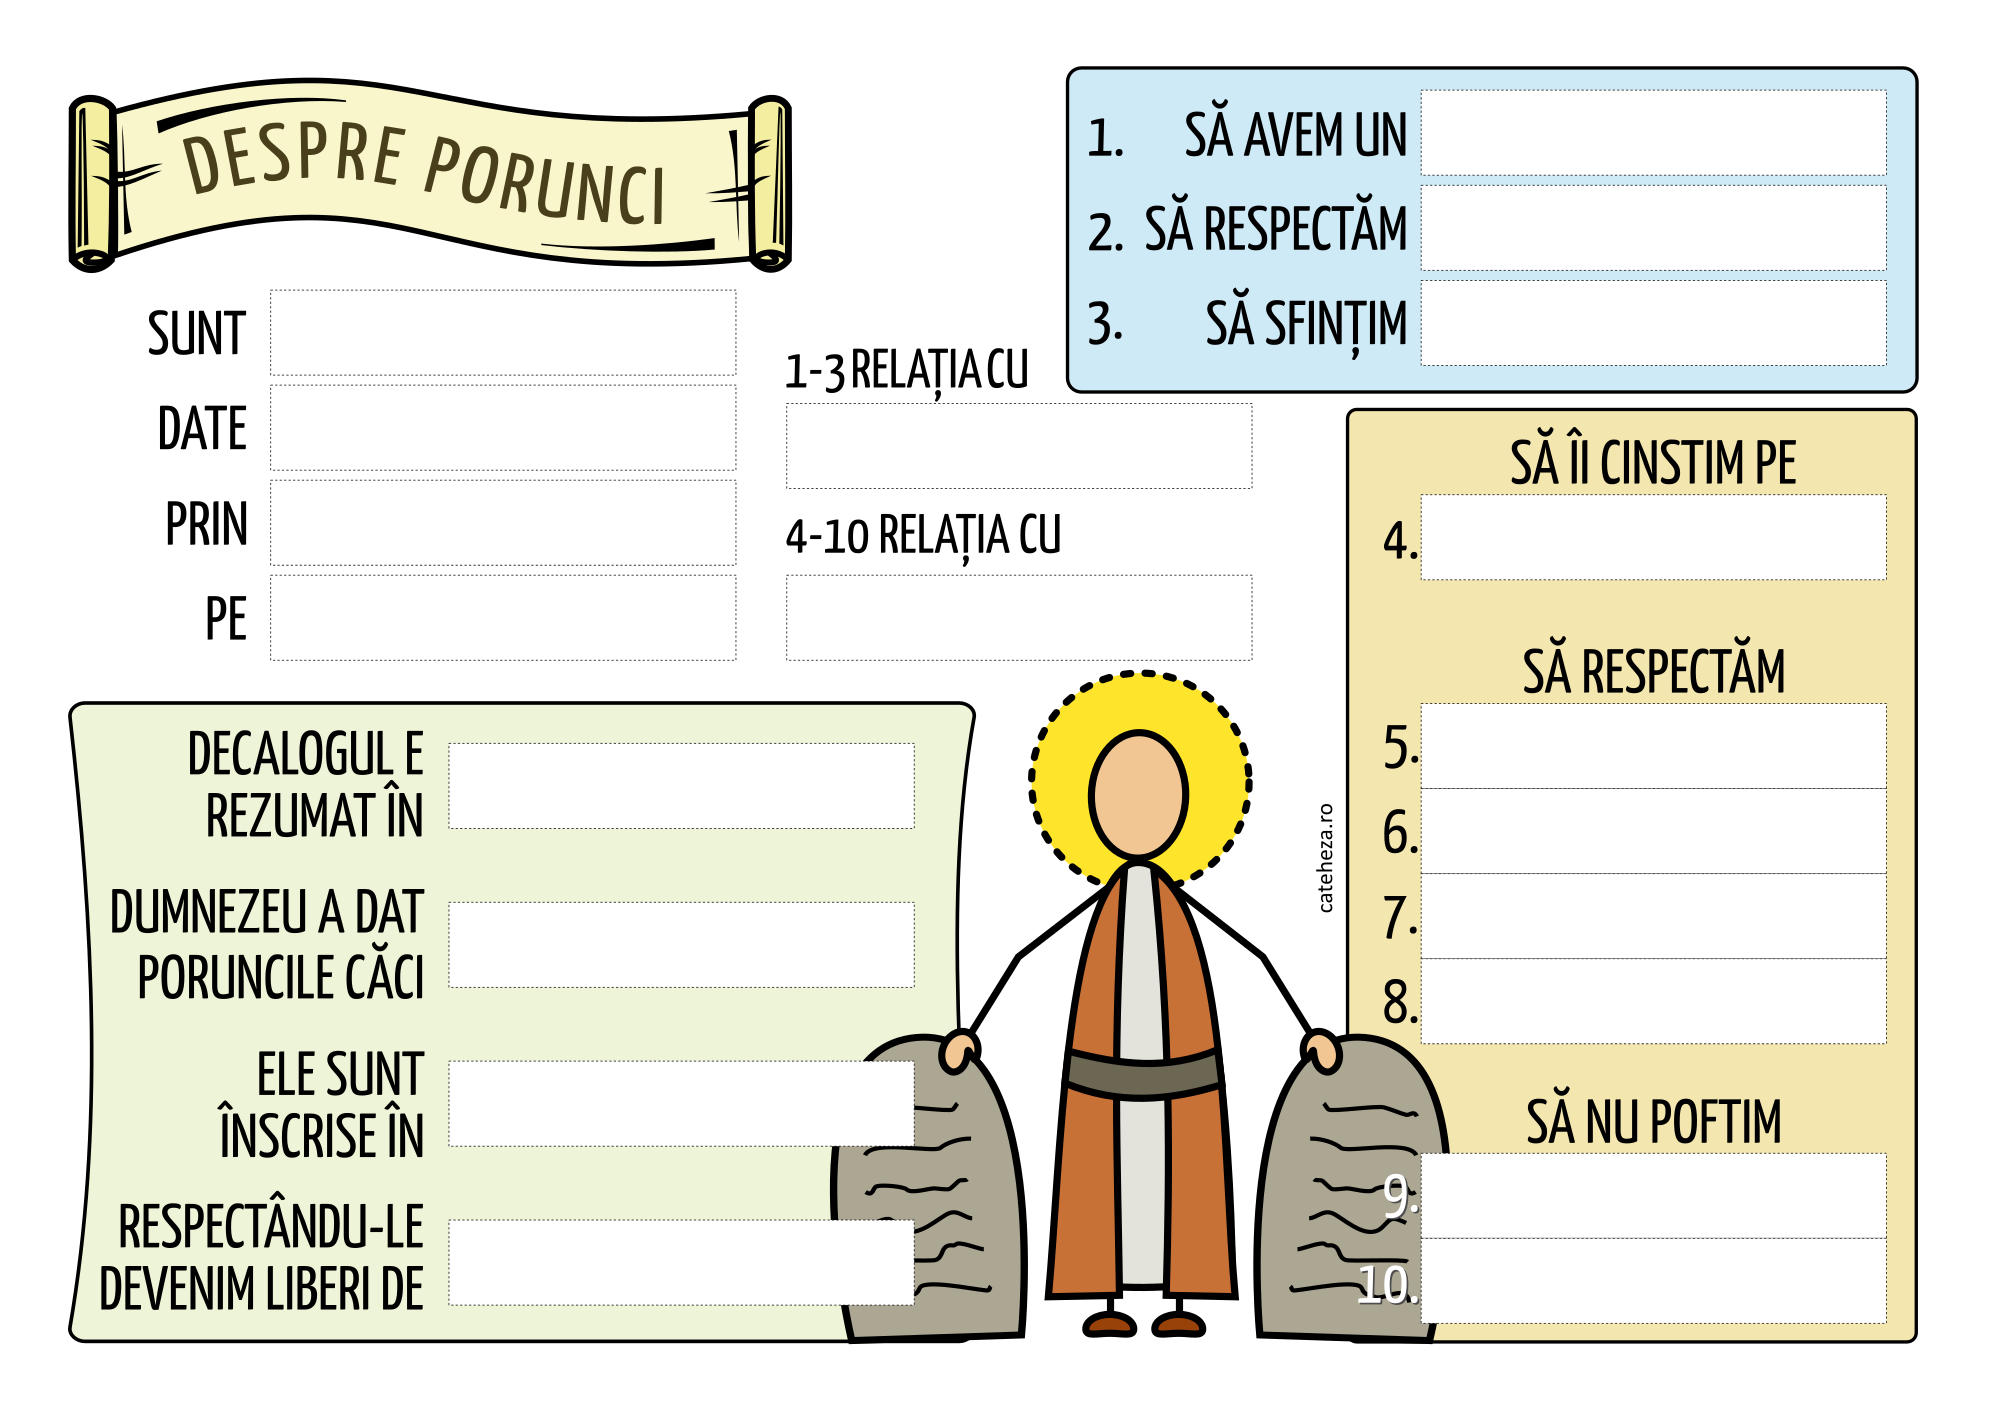 DESPRE PORUNCI
SUNT
DATE
PRIN
PE
1-3 RELAȚIA CU
4-10 RELAȚIA CU
1. SĂ AVEM UN
2. SĂ RESPECTĂM
3. SĂ SFINȚIM
SĂ ÎI CINSTIM PE
4.
SĂ RESPECTĂM
5.
6.
7.
8.
SĂ NU POFTIM
9.
10.
DECALOGUL E
REZUMAT ÎN
DUMNEZEU A DAT
PORUNCILE CĂCI
ELE SUNT
ÎNSCRISE ÎN
RESPECTÂNDU-LE
DEVENIM LIBERI DE
cateheza.ro